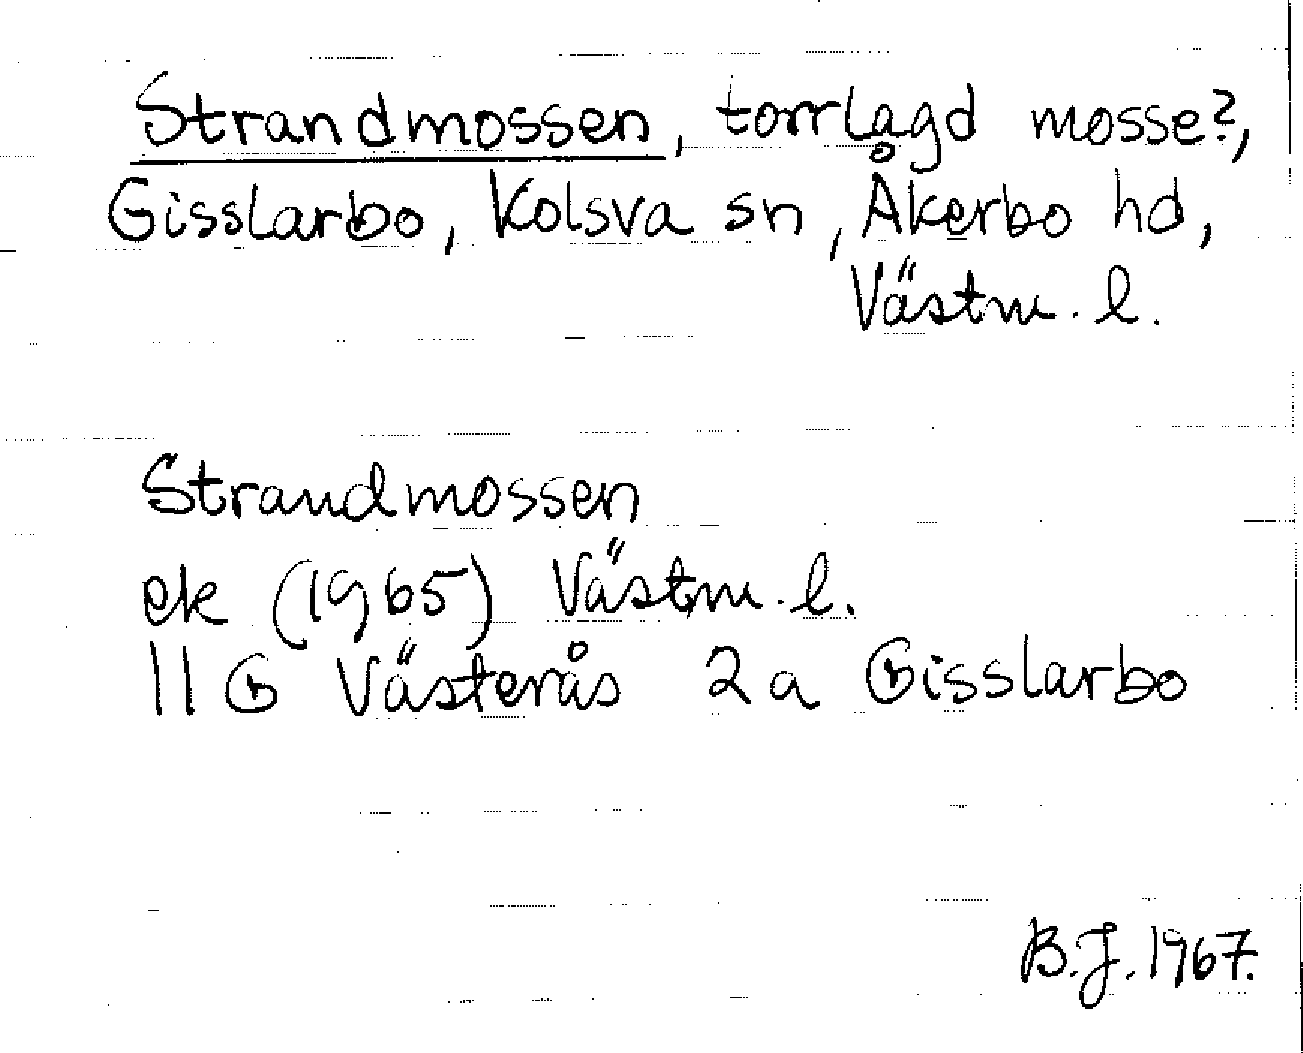 Strandmossen, torrlagd mosse?,
Gisslarbo, Kolsva sn, Åkerbo hd,
Västm. l.
Strandmossen
ek (1965) Västm. l.
11 G Västerås 2 a Gisslarbo
B.J. 1967.